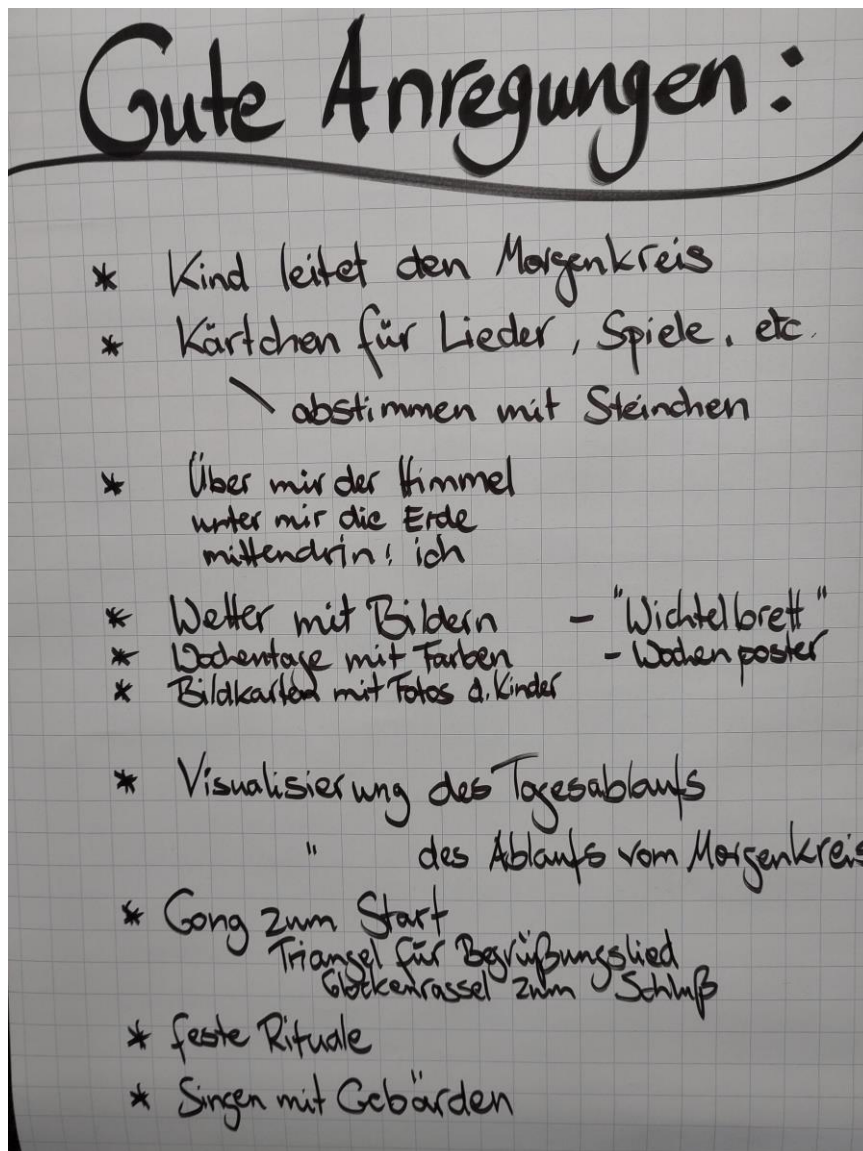 Gute Anregungen:
* Kind leitet den Morgenkreis
* Kärtchen für Lieder, Spiele, etc.
\ abstimmen mit Steinchen
* Über mir der Himmel
unter mir die Erde
mittendrin: ich
* Wetter mit Bildern - "Wichtelbrett"
* Wochentage mit Farben - Wochenposter
* Bildkarten mit Fotos d. Kinder
* Visualisierung des Tagesablaufs
" des Ablaufs vom Morgenkreis
* Gong zum Start
Triangel für Begrüßungslied
Glockenrassel zum Schluß
* feste Rituale
* Singen mit Gebärden